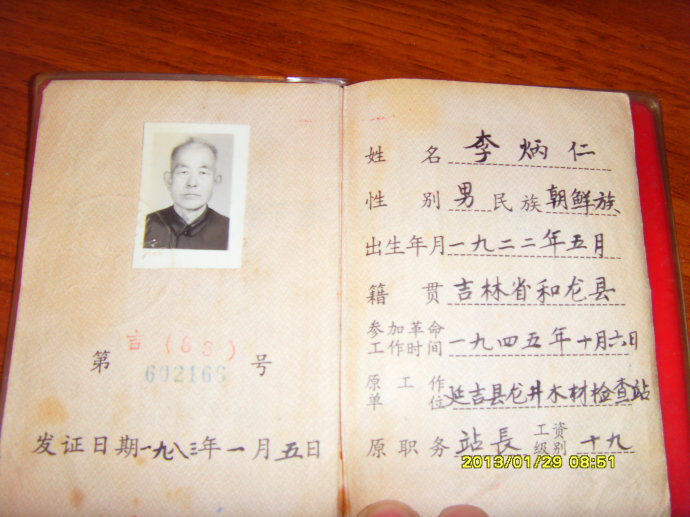 吉(83)
第 602165 号
发证日期一九八三年一月五日
姓名 李炳仁
性别 男 民族 朝鲜族
出生年月 一九二二年五月
籍贯 吉林省和龙县
参加革命工作时间 一九四五年十月六日
原工作单位 延吉县龙井木材检查站
原职务 站長 工资级别 十九
2013/01/29 08:51